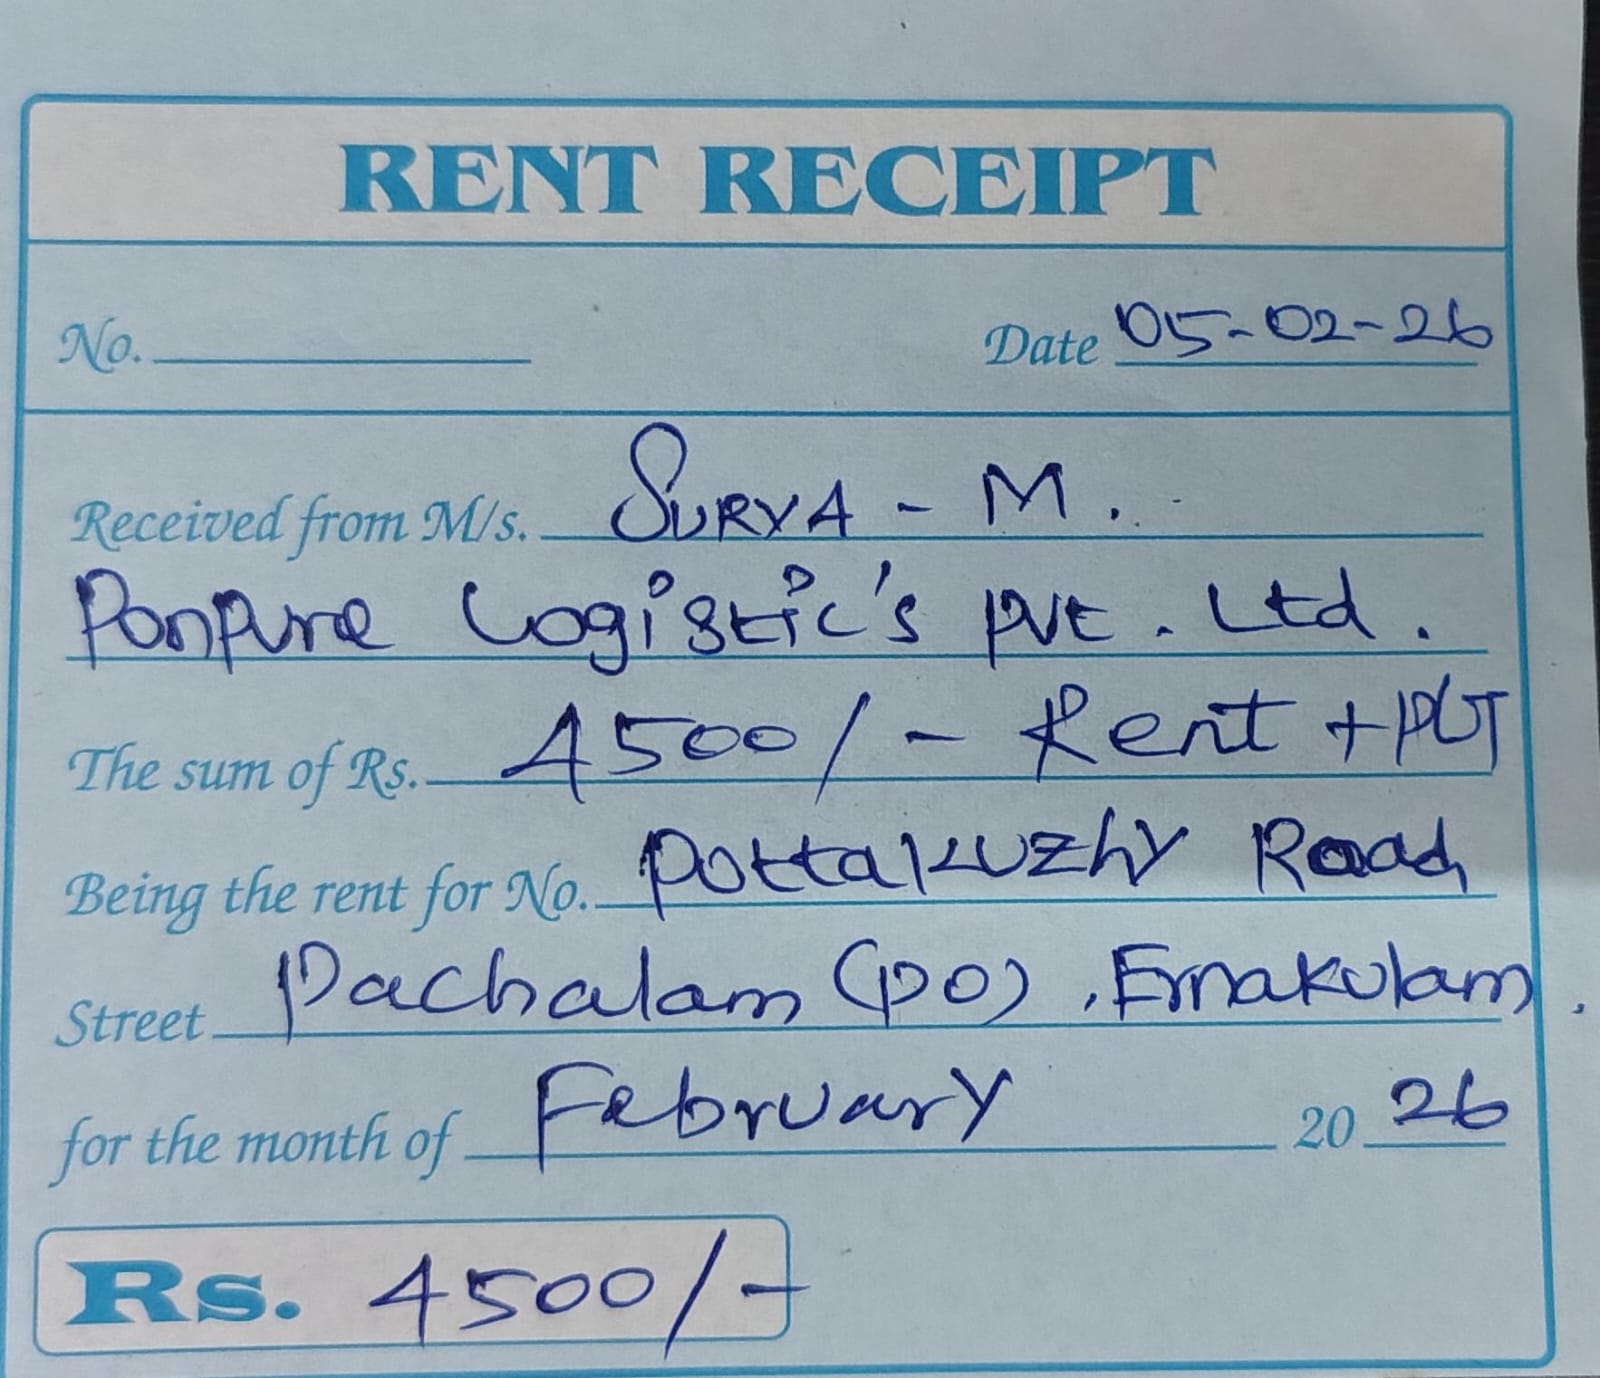 RENT RECEIPT
No. Date 05-02-26
Received from M/s. SURYA - M.
Ponpure Logistic's pvt. Ltd.
The sum of Rs. 4500/- Rent +
Being the rent for No. Pottakuzhy Road
Street Pachalam (PO), Ernakulam.
for the month of February 20 26
Rs. 4500/-